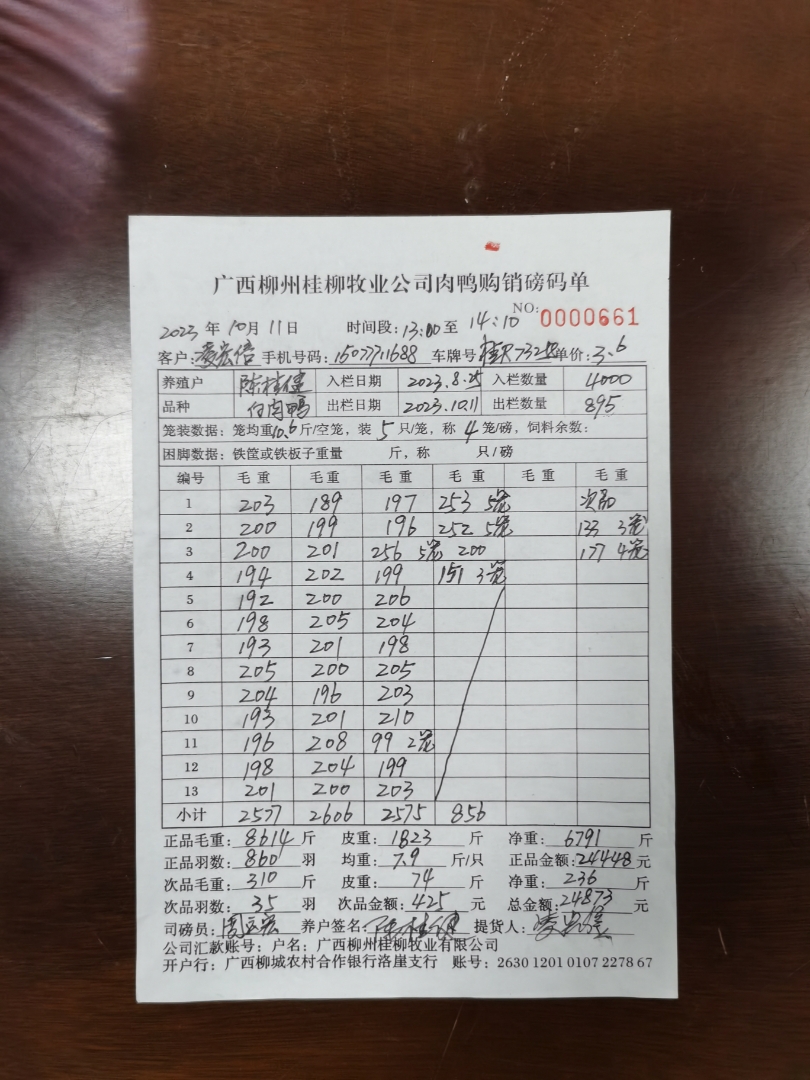 广西柳州桂柳牧业公司肉鸭购销磅码单
NO: 0000661
2023 年 10 月 11 日 时间段: 13:00 至 14:10
客户: 凌宏倍 手机号码: 15077711688 车牌号 桂 单价: 3.6
养殖户 陈桂健 入栏日期 2023.8.25 入栏数量 4000
品种 白肉鸭 出栏日期 2023.10.11 出栏数量 895
笼装数据: 笼均重 10.6 斤/空笼, 装 5 只/笼, 称 4 笼/磅, 饲料余数:
困脚数据: 铁筐或铁板子重量 斤, 称 只/磅
编号 毛重 毛重 毛重 毛重 毛重 毛重
1 203 189 197 253 5笼 次品
2 200 199 196 252 5笼 133 3笼
3 200 201 256 5笼 200 177 4笼
4 194 202 199 151 3笼
5 192 200 206
6 198 205 204
7 193 201 198
8 205 200 205
9 204 196 203
10 193 201 210
11 196 208 99 2笼
12 198 204 199
13 201 200 203
小计 2577 2606 2575 856
正品毛重: 8614 斤 皮重: 1823 斤 净重: 6791 斤
正品羽数: 860 羽 均重: 7.9 斤/只 正品金额: 24448 元
次品毛重: 310 斤 皮重: 74 斤 净重: 236 斤
次品羽数: 35 羽 次品金额: 425 元 总金额: 24873 元
司磅员: 周 养户签名: 陈桂健 提货人: 凌
公司汇款账号: 户名: 广西柳州桂柳牧业有限公司
开户行: 广西柳城农村合作银行洛崖支行 账号: 2630 1201 0107 2278 67